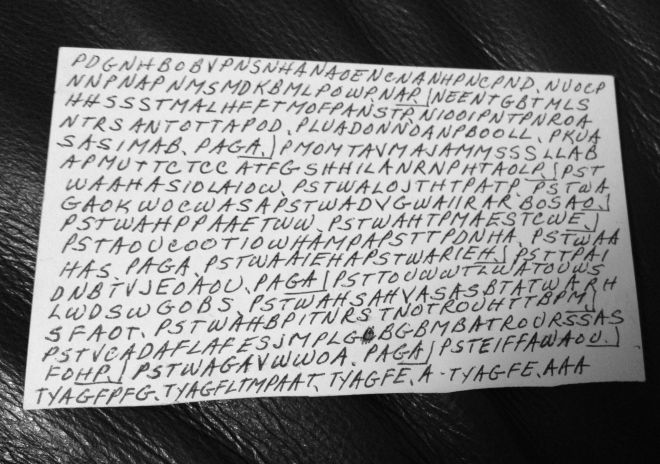 PDGNHBOBVPNSNHANAOENCNANHPNCPND, NUOCP
NNPNAPNMSMDKBMLPOWP, NAP/NEENTGBTMLS
HHSSSTMALHFFTMOFPANSTP, NIOOIPNTPNROA
NTRSANTOTTAPOD, PLUADONNOANPBOOLL, PKUA
SASIMAB, PAGA/PMOMTAVMAJAMMSSSLLAB
APMUTTCTCCATFGSHHILANRNPHTAOLP/PST
WAAHASIOLAIOW, PSTWALOJTHTPATP, PSTWA
GAOKWOCWASAPSTWADVGWAIIRAR, BOSAO,/
PSTWAHPPAAETWW, PSTWAHTPMAESTCWE,/
PSTAOUCOOTIOWHAMPAPSTTPDNHA, PSTWAA
HAS, PAGA, PSTWAAIEHAPSTWARIEH/PSTTPAI
DNBTVJEOAOU, PAGA/PSTTOUWWTLWATOUWS
LWDSWGOBS, PSTWAHSAHVASASBTATWARH
SFAOT, PSTWAHBPITNRSTNOTROUHTTBPM/
PSTVCADAFLAFESJMPLG BGBMBATROURSSAS
FOHP,/PSTWAGAVWWOA, PAGA/PSTEIFFAWAOU,/
TYAGFPFG, TYAGFLTMPAAT, TYAGFE, A-TYAGFE, AAA